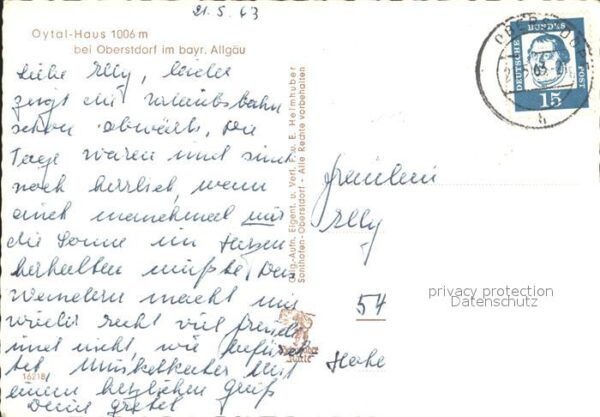 21.5.63
Oytal-Haus 1006 m
bei Oberstdorf im bayr. Allgäu
Liebe Elly, leider
zeigt die Urlaubsbahn
schon abwärts, Die
Tage waren und sind
noch herrlich, wenn
auch manchmal nur
die Sonne im Herzen
herhalten mußte. Das
Wandern macht mir
wieder recht viel Freude
und nicht, wie befürch
tet Muskelkater Mit
einem herzlichen Gruß
Deine Gretel
16218
Orig.-Aufn. Eigent. u. Verl. F. u. E. Heimhuber
Sonthofen-Oberstdorf - Alle Rechte vorbehalten
DEUTSCHE BUNDESPOST
15
OBERSTDORF
h
Fräulein
Elly
54
privacy protection
Datenschutz